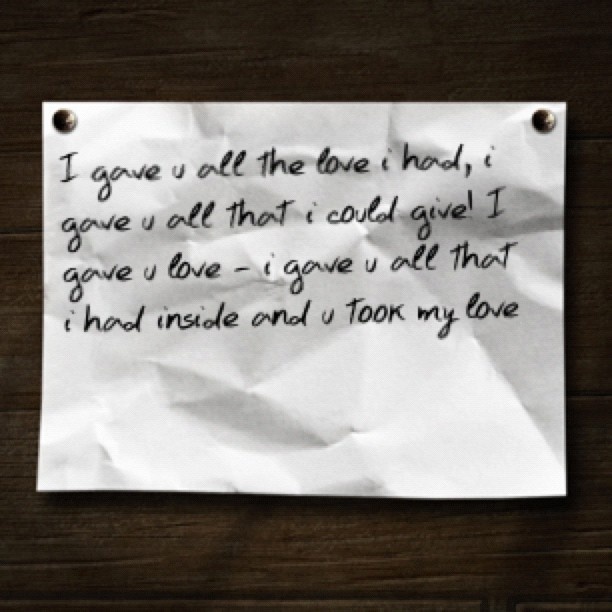 I gave u all the love i had, i
gave u all that i could give! I
gave u love - i gave u all that
i had inside and u took my love